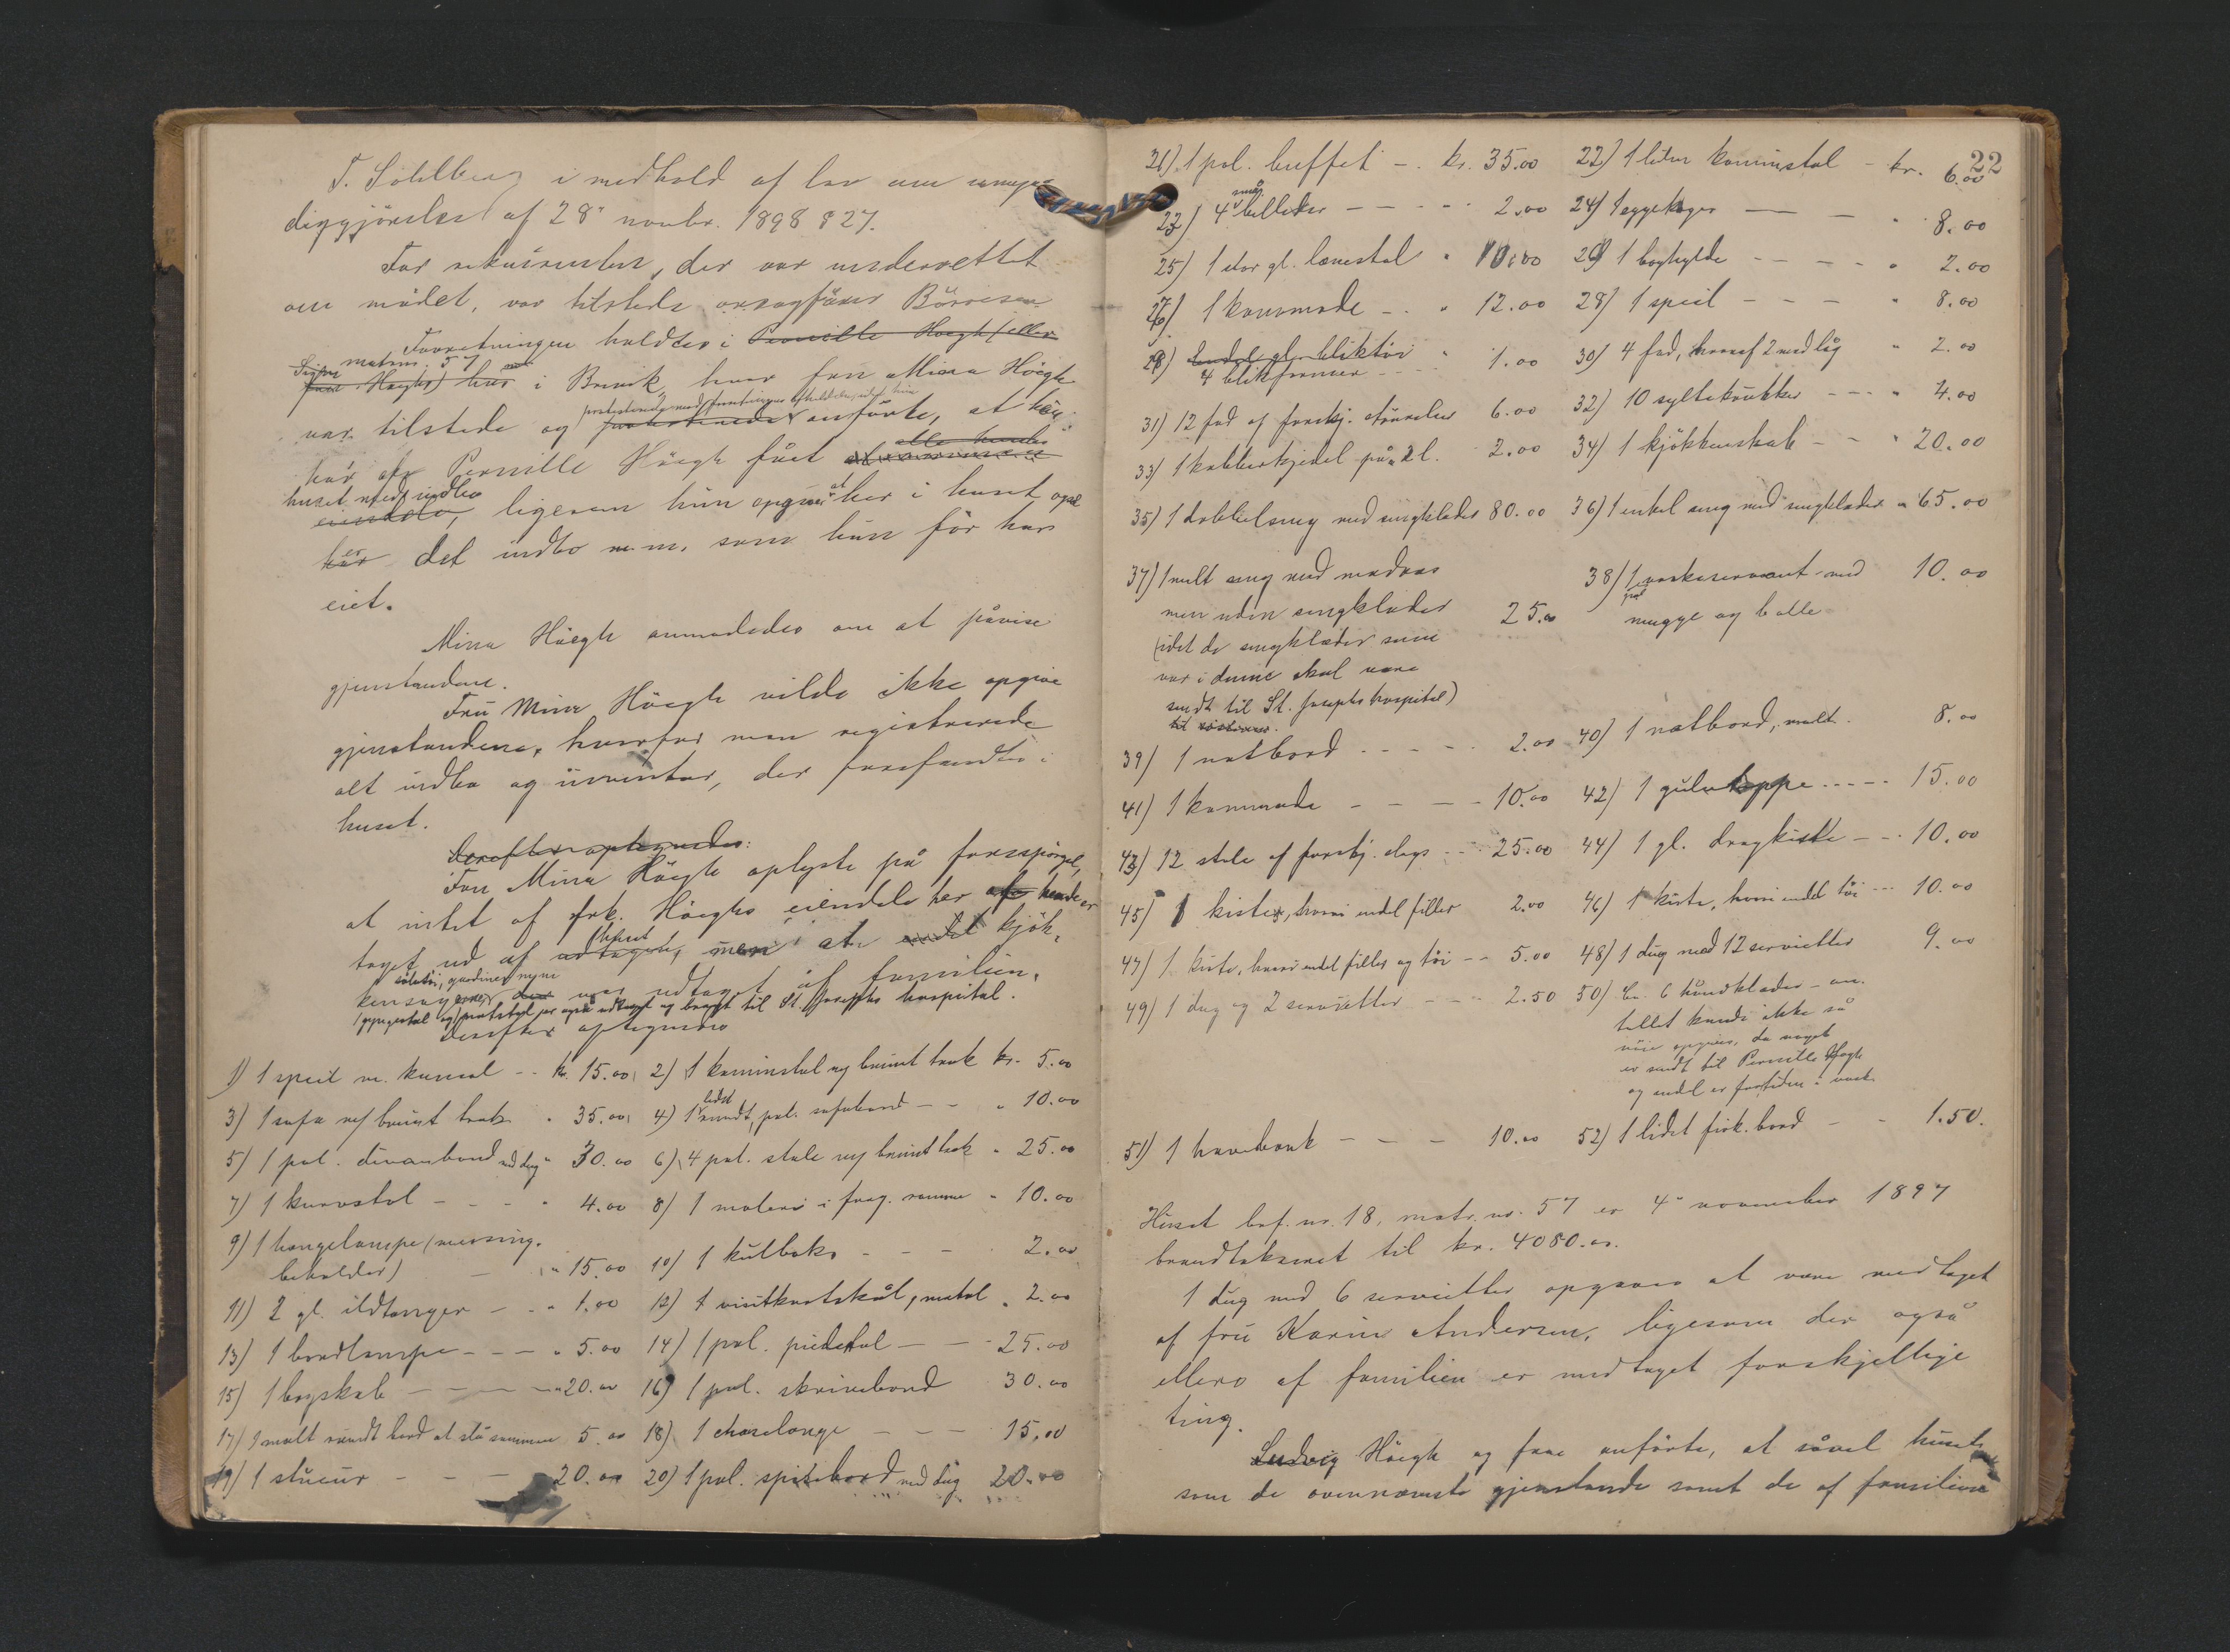 T. Sohlberg i medhold af lov om umyn-
diggjörelse af 28de novbr. 1898 § 27.
For rekvirenten, der var underrettet
om mödet, var tilstede orsagförer Börresen
Forretningen holdtes i Pernille Höegh (eller
matrnr. 57
Höeghs) hus i Brevik, hvor fru Mina Höegh
protesterede mod forretningens afholdelse, idet hun
var tilstede og protesterede anförte, at hun
alle hendes
har af Pernille Höegh fået
huset med indbo
eiendele, ligesom hun opgav at her i huset også
er
har det indbo m.m. som hun för har
eiet.
Mina Höegh anmodedes om at påvise
gjenstandene.
Fru Mina Höegh vilde ikke opgive
gjenstandene, hvorfor man registrerede
alt indbo og inventar, der forefandtes i
huset.
Derefter optegnedes:
Fru Mina Höegh oplyste på forespörgsel,
at intet af frk. Höeghs eiendele her af hende er
huset
taget ud af udtaget, men at endel kjök-
sölvtöi, gardiner m.m.
kensager, der var udtaget af familien.
1 gyngestol og natstol er også udtaget og bragt til St. Josephs hospital.
Derefter optegnedes
1) 1 speil m. konsol - - kr. 15.00 2) 1 kaminstol m/ brunt træk kr. 5.00
3) 1 sofa m/ brunt træk " 35.00 4) 1 lidet rundt, pol. sofabord - - " 10.00
5) 1 pol. divanbord med dug " 30.00 6) 4 pol. stole m/ brunt træk " 25.00
7) 1 kurvstol - - - " 4.00 8) 1 maleri i forg. ramme " 10.00
9) 1 hængelampe (messing-
beholder) - " 15.00 10) 1 kulboks - - - 2.00
11) 2 gl. ildtænger - - " 1.00 12) 1 visitkortskål, metal " 2.00
13) 1 bordlampe - - - " 5.00 14) 1 pol. piedestal - - - 25.00
15) 1 bogskab - - - " 20.00 16) 1 pol. skrivebord 30.00
17) 1 malt rundt bord at slå sammen 5.00 18) 1 chaiselonge - - - 15.00
19) 1 stueur - - - 20.00 20) 1 pol. spisebord med dug 20.00
22
21) 1 pol. buffet - . kr. 35.00 22) 1 liden kaminstol - kr. 6.00
små
23) 4 billeder - - - - 2.00 24) 1 eggekoger - - " 8.00
25) 1 stor gl. lænestol " 10.00 26) 1 boghylde - - - - " 2.00
27) 1 kommode - . " 12.00 28) 1 speil - - - " 8.00
29) Endel gl. bliktöi " 1.00 30) 4 fad, hvoraf 2 med låg " 2.00
4 blikformer
31) 12 fad af forskj. störrelse 6.00 32) 10 syltekrukker - - - " 4.00
33) 1 kobberkjedel på 2 l. 2.00 34) 1 kjökkenskab - - " 20.00
35) 1 dobbeltseng med sengklæder 80.00 36) 1 enkel seng med sengklæder " 65.00
37) 1 malt seng med madras 38) 1 vaskeservant med 10.00
pol.
men uden sengklæder 25.00 mugge og bolle
(idet de sengklæder som
var i denne skal være
sendt til St. Josephs hospital)
39) 1 natbord - - - - - 2.00 40) 1 natbord, malt. 8.00
41) 1 kommode - - - - 10.00 42) 1 gulvteppe - - - - 15.00
43) 12 stole af forskj. slags - - 25.00 44) 1 gl. dragkiste - - . 10.00
45) 1 kiste, hvori endel filler 2.00 46) 1 kiste, hvori endel töi - - - 10.00
47) 1 kiste, hvori endel filler og töi - - 5.00 48) 1 dug med 12 servietter 9.00
49) 1 dug og 2 servietter - - - 2.50 50) En. 6 håndklæder - an-
tallet kunde ikke så
nöie opgives, da noget
er sendt til Pernille Höegh
og endel er for tiden i vask.
51) 1 havebænk - - - 10.00 52) 1 lidet firk. bord - - 1.50.
Huset löb. nr. 18, matr. nr. 57 er 4de november 1897
brandtakseret til kr. 4080.00.
1 dug med 6 servietter opgaves at være medtaget
af fru Karin Andersen, ligesom der også
ellers af familien er medtaget forskjellige
ting.
Ludvig Höegh og frue anförte, at såvel huset
som de ovennævnte gjenstande samt de af familien